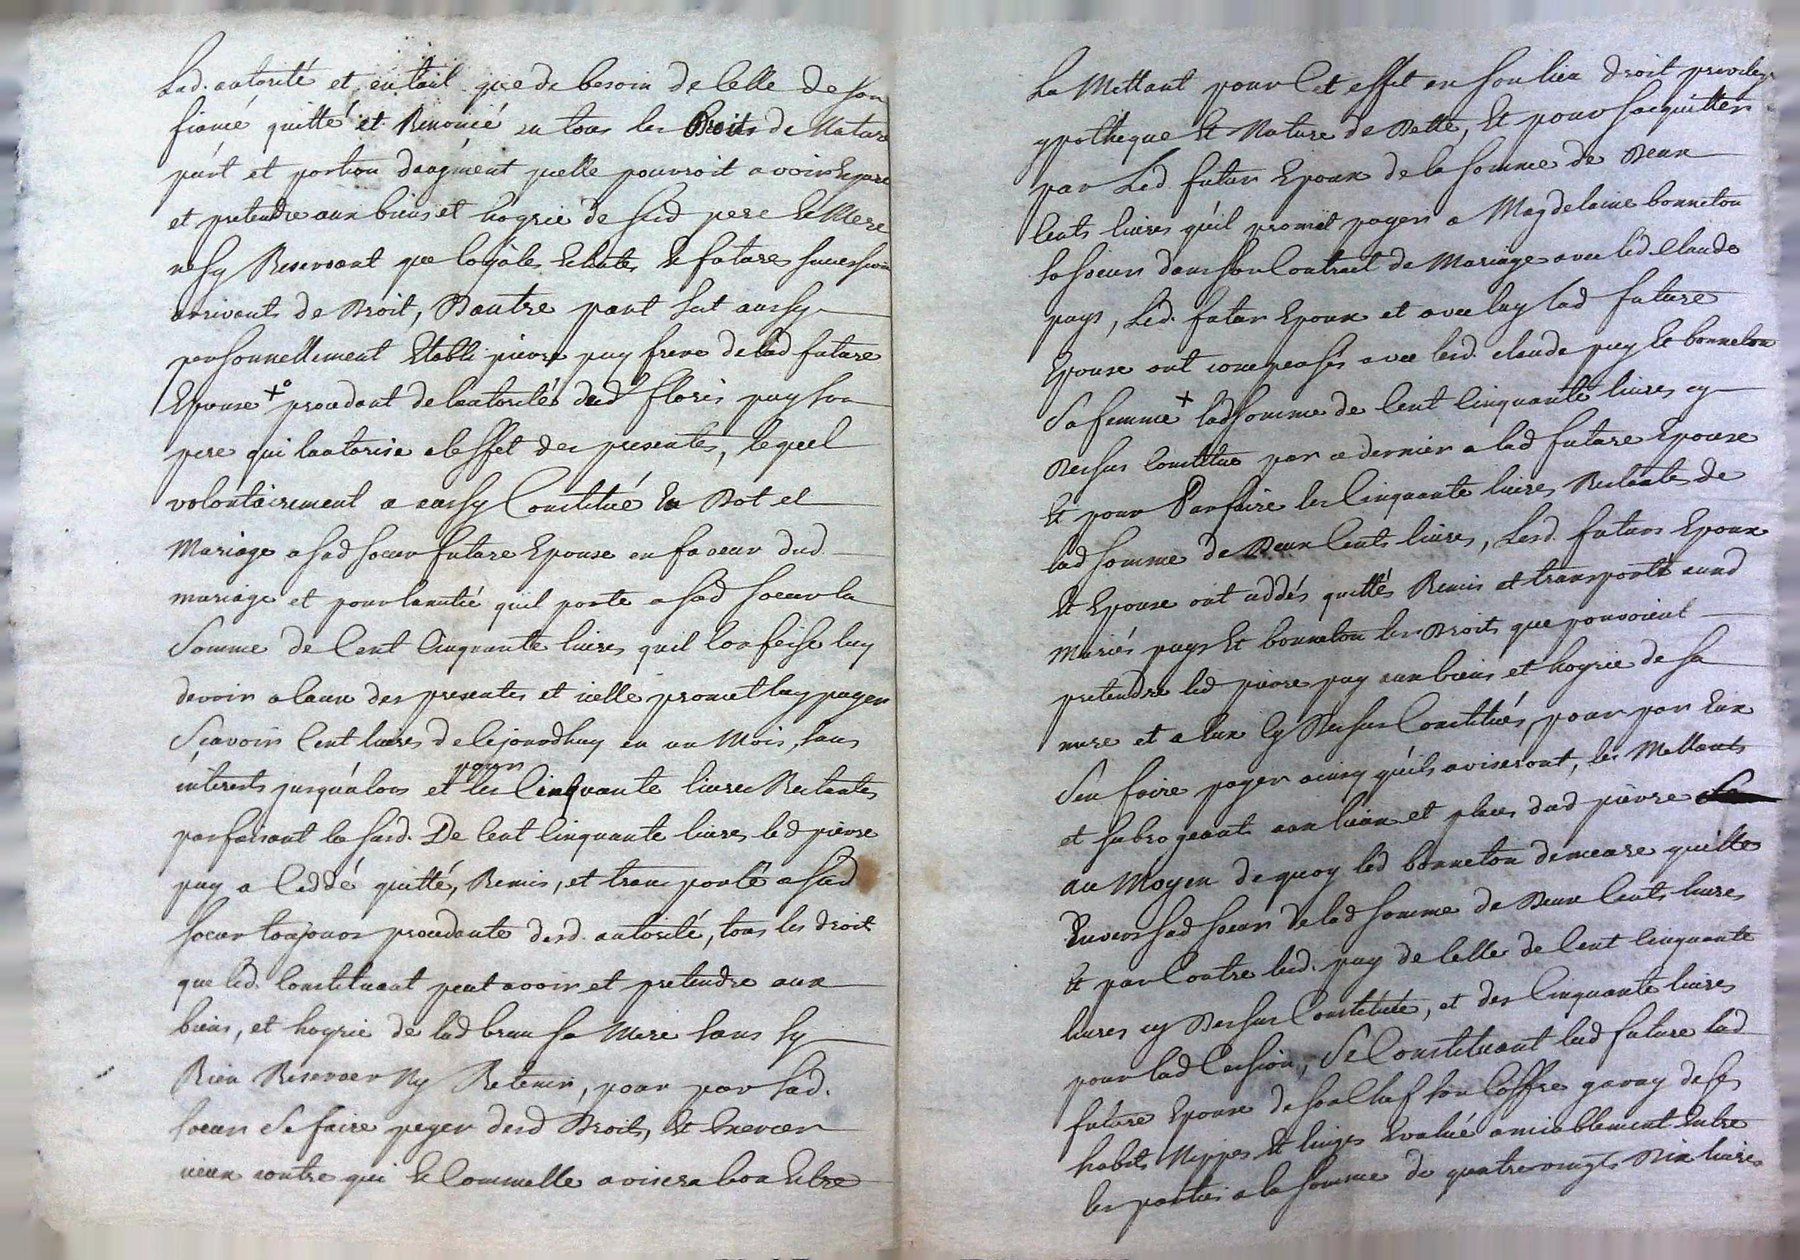 Lad. autorité et entant que de besoin de Celle de son
fiancé quitté et Renoncé en tous les Droits de Nature
part et portion daugment quelle pourroit avoir Espere
et pretendre aux biens et hoyrie de sesd pere Et Mere
ne sy Reservant que loyales Echutes Et futures succession
arrivant de Droit, Dautre part sest aussy
personnellement Etabli pierre puy frere de lad future
Epouse +° procedant de lautorité dud floris puy son
pere qui lautorise a leffet des presentes, lequel
volontairement a aussy Constitué En Dot et
Mariage a sad soeur future Epouse en faveur dud
mariage et pour lamitié quil porte a sad soeur la
Somme de Cent Cinquante livres quil Confesse luy
devoir a Cause des presentes et icelle promet luy payer
Scavoir Cent livres de Cejourdhuy en un Mois, sans
interets jusqualors et pour les Cinquante livres Restantes
parfaisant la susd. De Cent Cinquante livres led pierre
puy a Ceddé quitté, Remis, et transporté a sad
soeur toujours procedante desd. autorité, tous les droit
que led. Constituant peut avoir et pretendre aux
biens, et hoyrie de lad brun sa Mere sans sy
Rien Reserver Ny Retenir, pour par sad.
soeur Se faire payer desd Droits, Et Exercer
iceux contre qui Et Commelle avisera bon Estre
La Mettant pour Cet effet en son lieu droit privilege
ypotheque Et Nature de Dette, Et pour sacquitter
par Led futur Epoux de la somme de Deux
Cents livres quil promit payer a Magdelaine bonneton
sa soeur dans son Contrat de Mariage avec led Claude
puys, Led. futur Epoux et avec luy lad future
Epouse ont compensés avec lesd. claude puy Et bonneton
Sa femme + lad somme de Cent Cinquante livres cy
Dessus Constitué par ce dernier a lad future Epouse
Et pour Parfaire les Cinquante livres Restantes de
lad somme de Deux Cents livres, Lesd. futurs Epoux
Et Epouse ont ceddés quittés Remis et transporté auxd
Mariés puys Et bonneton les Droits que pouvoient
pretendre led pierre puy aux biens et hoyrie de sa
mere et a Eux Cy Dessus Constitués, pour par Eux
Sen faire payer ainsy quils aviseront, les Mettants
et subrogeants aux lieux et places dud pierre
au Moyen de quoy led bonneton demeure quitte
Envers sad soeur de lad somme de Deux Cents livres
Et par Contre led. puy de Celle de Cent Cinquante
livres cy Dessus Constituée, et des Cinquante livres
pour lad Cession, Se Constituant lad future lad
future Epouse de son Chef son Coffre garny de ses
habits Nippes Et linges Evalué amiablement Entre
les parties a la somme de quatre vingts Dix livres